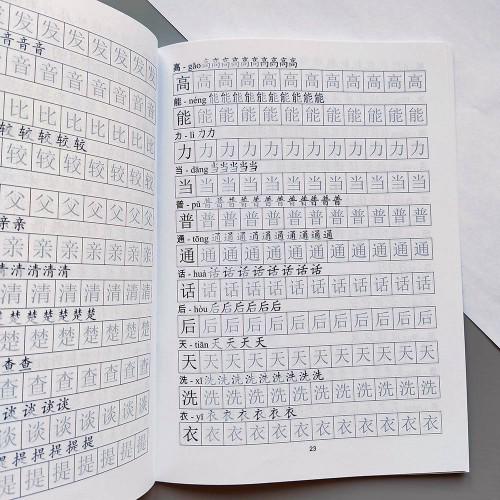 发 发 发 发
音 音 音
音 音 音 音 音
比 比 比 比
较 较 较 较
较 较 较 较
父 父 父 父 父
亲 亲
亲 亲 亲 亲 亲
清 清 清 清
清 清 清 清
楚 楚 楚 楚 楚 楚
楚 楚 楚 楚
查 查
查 查 查 查
谈 谈 谈 谈
谈 谈 谈 谈
提 提 提 提
提 提 提 提
高 - gāo 高高高高高高高高高高
高 高 高 高 高 高 高 高 高 高 高
能 - néng 能能能能能能能能能能
能 能 能 能 能 能 能 能 能 能 能
力 - lì 力力
力 力 力 力 力 力 力 力 力 力 力
当 - dāng 当当当当当
当 当 当 当 当 当 当 当 当 当 当
普 - pǔ 普普普普普普普普普普普普
普 普 普 普 普 普 普 普 普 普 普
通 - tōng 通通通通通通通通通通
通 通 通 通 通 通 通 通 通 通 通
话 - huà 话话话话话话话话
话 话 话 话 话 话 话 话 话 话 话
后 - hòu 后后后后后后
后 后 后 后 后 后 后 后 后 后 后
天 - tiān 天天天天
天 天 天 天 天 天 天 天 天 天 天
洗 - xǐ 洗洗洗洗洗洗洗洗洗
洗 洗 洗 洗 洗 洗 洗 洗 洗 洗 洗
衣 - yī 衣衣衣衣衣衣
衣 衣 衣 衣 衣 衣 衣 衣 衣 衣 衣
23